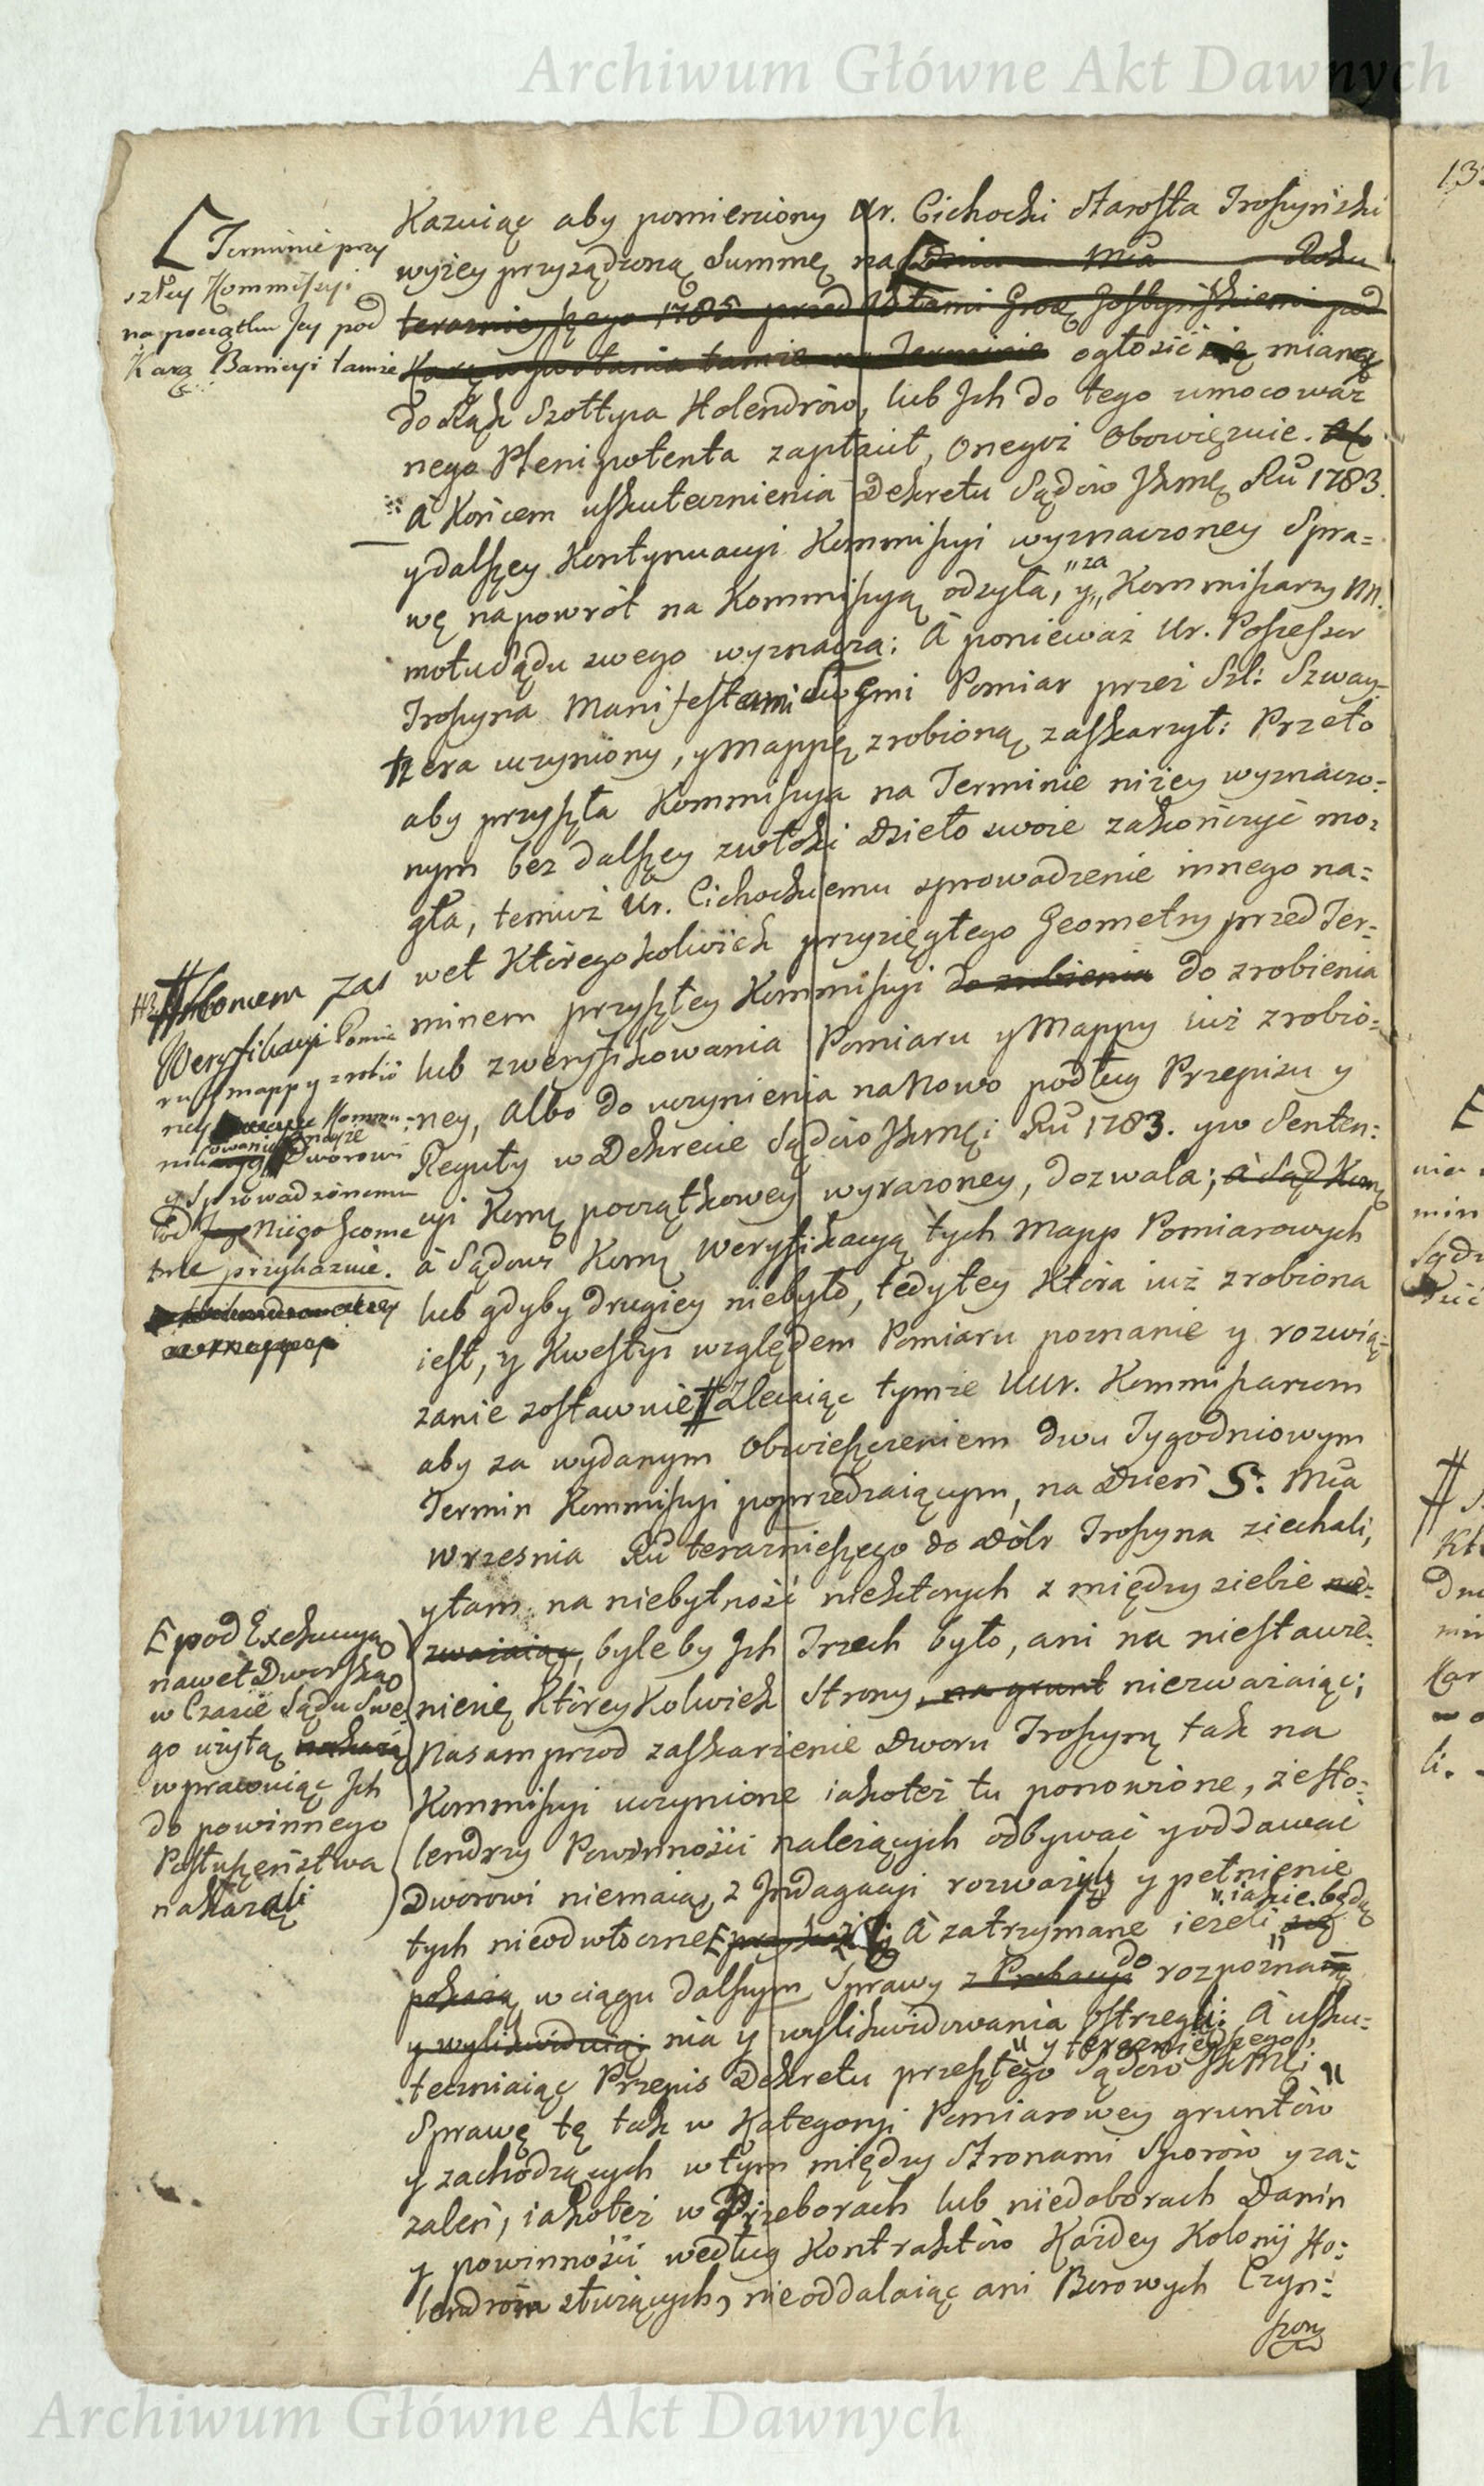 Archiwum Główne Akt Dawnych
Kazuiąc aby pomieniony Ur. Cichocki Starosta Troszyński
wyżey przysądzoną Summę na Dnia Mca Roku
teraznieyszego 1785 przed Aktami Grod. Gostyńskiemi pod
Karą wywołania tamże na Terminie ogłosić się mianey
do Rąk Szołtysa Holendrów, lub Jch do tego umocowa-
nego Plenipotenta zapłacił, onegoż obowięzuie.
A końcem uskutecznienia Dekretu Sądów Jkmci Ru 1783.
y dalszey kontynuacyi Kommissyi wyznaczoney Spra=
wę napowrót na Kommissyą odsyła, y "za" Kommisarzy nn.
motu Sądu swego wyznacza: A ponieważ Ur. Possessor
Troszyna Manifestami Swemi Pomiar przez Szl: Szway-
tzera uczyniony, y Mappę zrobioną zaskarzył: Przeto
aby przyszła Kommissya na Terminie niżey wyznaczo=
nym bez dalszey zwłoki Dzieło swoie zakończyć mo=
gła, temuż Ur. Cichockiemu sprowadzenie innego na=
wet któregokolwiek przysięgłego Geometry przed Ter=
minem przyszłey Kommissyi do zrobienia do zrobienia
lub zweryfikowania Pomiaru y Mappy iuż zrobio=
ney, albo do uczynienia na Nowo podług Przepisu y
Reguły w Dekrecie Sądów Jkmci Ru 1783. y w Senten=
cyi Komi początkowey wyrażoney, dozwala; a Sąd Komi
a Sądowi Komi weryfikacyą tych Mapp Pomiarowych
lub gdyby drugiey niebyło, tedy tey która iuż zrobiona
iest, y kwestyi względem Pomiaru poznanie y rozwią=
zanie zostawuie # Zlecaiąc tymże UUr. Kommisarzom
aby za wydanym Obwieszczeniem dwu Tygodniowym
Termin Kommissyi poprzedzaiącym, na Dzień 5: Mca
Wrzesnia Ru teraznieyszego do Dóbr Troszyna ziechali,
y tam na niebytność niektórych z między siebie nie=
zważaiąc, byleby Jch Trzech było, ani na niestawie=
nienie którey kolwiek Strony, na grunt niezważaiąc;
Nasamprzod zaskarżenie Dworu Troszyna tak na
Kommissyi uczynione iakoteż tu ponowione, że Ho=
lendrzy Powinności należących odbywać y oddawać
Dworowi niemaią, z Jndagacyi rozważyli y pełnienie
tych nieodwłoczne A zatrzymane ieżeli "iakie będą"
pokażą, w ciągu dalszym Sprawy z Probacyi do rozpozna=
y wylikwiduią nia y wylikwidowania ostrzegli: A usku=
teczniaiąc Przepis Dekretu przeszłego "y teraznieyszego" Sądów Jkmci
Sprawę tę tak w Kategoryi Pomiarowey gruntów
y zachodzących w tym między Stronami Sporów y za=
zaleń, iakoteż w Przeborach lub niedoborach Danin
y powinności według Kontraktów każdey Kolonii Ho=
lendrom służących, nieoddalaiąc ani Borowych Czyn=
szow
Terminie przy
szłey Kommissyi
na początku Jey pod
Karą Banicyi tamże
Końcem zas
Weryfikacyi Pomia
ru y mappy zrobio
ney Kommu=
nikowanie Dworowi
y Sprowadzonemu
od Niego Geome
trze przykazuie.
E pod Exekucyą
nawet Dworską
w Czasie Sądu Swe
go użytą nakażą
wprawuiąc Jch
do powinnego
Posłuszeństwa
nakazali
Archiwum Główne Akt Dawnych